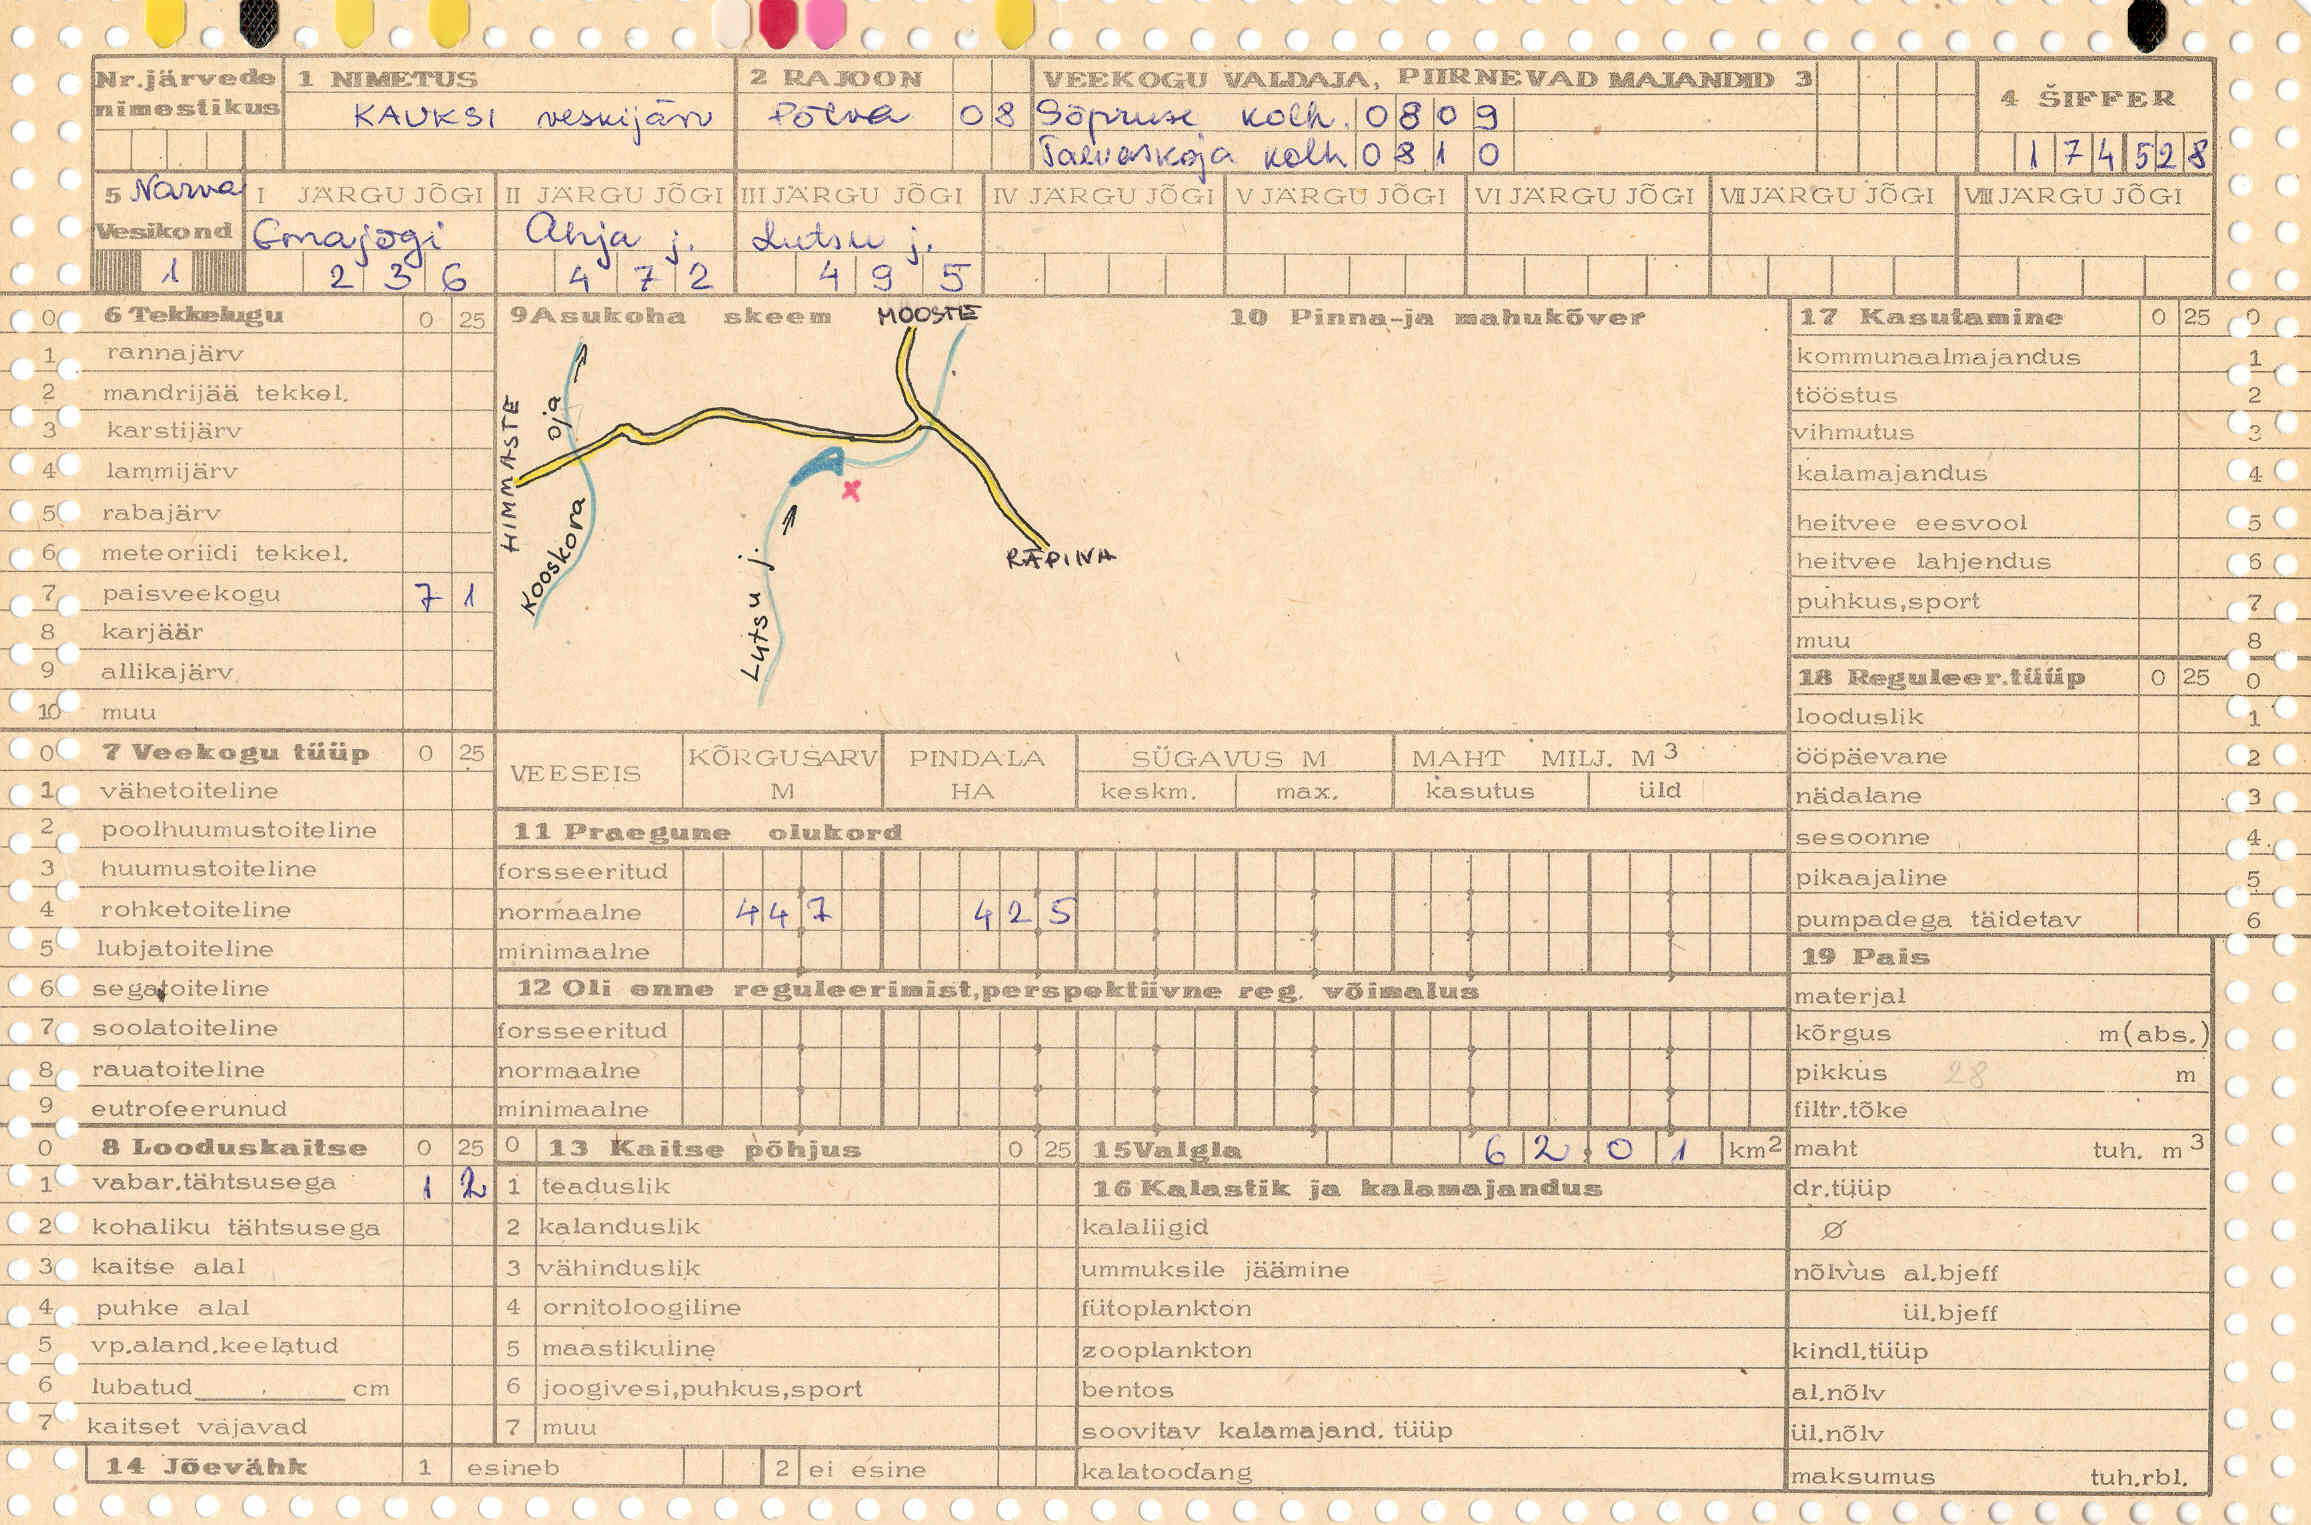 Nr.järvede nimestikus
1 NIMETUS
KAUKSI veskijärv
2 RAJOON
Põlva 08
VEEKOGU VALDAJA, PIIRNEVAD MAJANDID 3
Sõpruse kolh. 0809
Taevaskoja kolh 0810
4 ŠIFFER
174528
5 Narva
Vesikond
1
I JÄRGU JÕGI
Emajõgi
236
II JÄRGU JÕGI
Ahja j.
472
III JÄRGU JÕGI
Lutsu j.
495
IV JÄRGU JÕGI
V JÄRGU JÕGI
VI JÄRGU JÕGI
VII JÄRGU JÕGI
VIII JÄRGU JÕGI
0 6 Tekkelugu 0 25
1 rannajärv
2 mandrijää tekkel.
3 karstijärv
4 lammijärv
5 rabajärv
6 meteoriidi tekkel.
7 paisveekogu 7 1
8 karjäär
9 allikajärv
10 muu
0 7 Veekogu tüüp 0 25
1 vähetoiteline
2 poolhuumustoiteline
3 huumustoiteline
4 rohketoiteline
5 lubjatoiteline
6 segatoiteline
7 soolatoiteline
8 rauatoiteline
9 eutrofeerunud
0 8 Looduskaitse 0 25
1 vabar.tähtsusega 1 2
2 kohaliku tähtsusega
3 kaitse alal
4 puhke alal
5 vp.aland.keelatud
6 lubatud cm
7 kaitset vajavad
14 Jõevähk 1 esineb 2 ei esine
9 Asukoha skeem
MOOSTE
HIMMASTE
Kooskora oja
Lutsu j.
x
RÄPINA
10 Pinna-ja mahukõver
VEESEIS
KÕRGUSARV M
PINDALA HA
SÜGAVUS M
keskm. max.
MAHT MILJ. M3
kasutus üld
11 Praegune olukord
forsseeritud
normaalne 447 425
minimaalne
12 Oli enne reguleerimist,perspektiivne reg. võimalus
forsseeritud
normaalne
minimaalne
0 13 Kaitse põhjus 0 25
1 teaduslik
2 kalanduslik
3 vähinduslik
4 ornitoloogiline
5 maastikuline
6 joogivesi,puhkus,sport
7 muu
15 Valgla 62.01 km2
16 Kalastik ja kalamajandus
kalaliigid
ummuksile jäämine
fütoplankton
zooplankton
bentos
soovitav kalamajand. tüüp
kalatoodang
17 Kasutamine 0 25 0
kommunaalmajandus 1
tööstus 2
vihmutus 3
kalamajandus 4
heitvee eesvool 5
heitvee lahjendus 6
puhkus,sport 7
muu 8
18 Reguleer.tüüp 0 25 0
looduslik 1
ööpäevane 2
nädalane 3
sesoonne 4
pikaajaline 5
pumpadega täidetav 6
19 Pais
materjal
kõrgus m(abs.)
pikkus 28 m
filtr.tõke
maht tuh. m3
dr.tüüp
Ø
nõlvus al.bjeff
ül.bjeff
kindl.tüüp
al.nõlv
ül.nõlv
maksumus tuh.rbl.